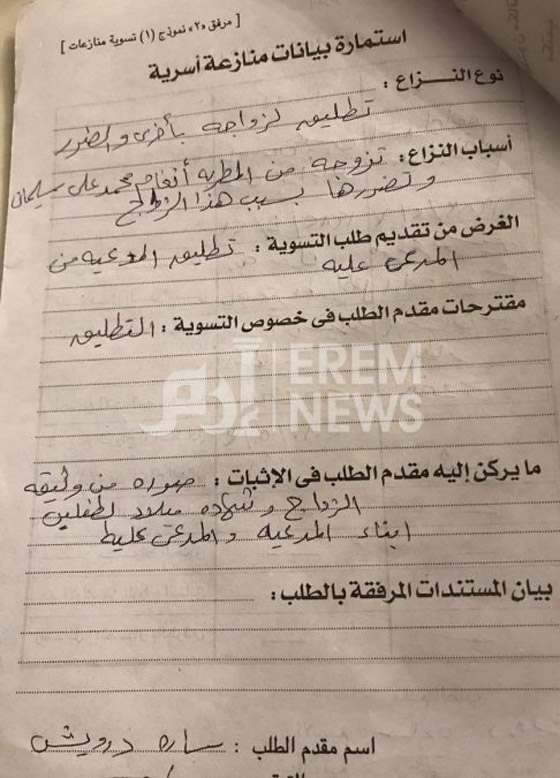 [ مرفق «٢» نموذج (١) تسوية منازعات ]
استمارة بيانات منازعة أسرية
نوع النـــزاع :
تطليق لزواجه بأخرى والضرر
أسباب النزاع : تزوجه من المطربه أنغام محمد على سليمان
وتضررها بسبب هذا الزواج
الغرض من تقديم طلب التسوية : تطليق المدعيه من
المدعى عليه
مقترحات مقدم الطلب فى خصوص التسوية : التطليق
إرم EREM
NEWS
ما يركن إليه مقدم الطلب فى الإثبات : صوره من وثيقه
الزواج و شهاده ميلاد لطفلين
ابناء المدعيه و المدعى عليه
بيان المستندات المرفقة بالطلب :
اسم مقدم الطلب : ساره درويش